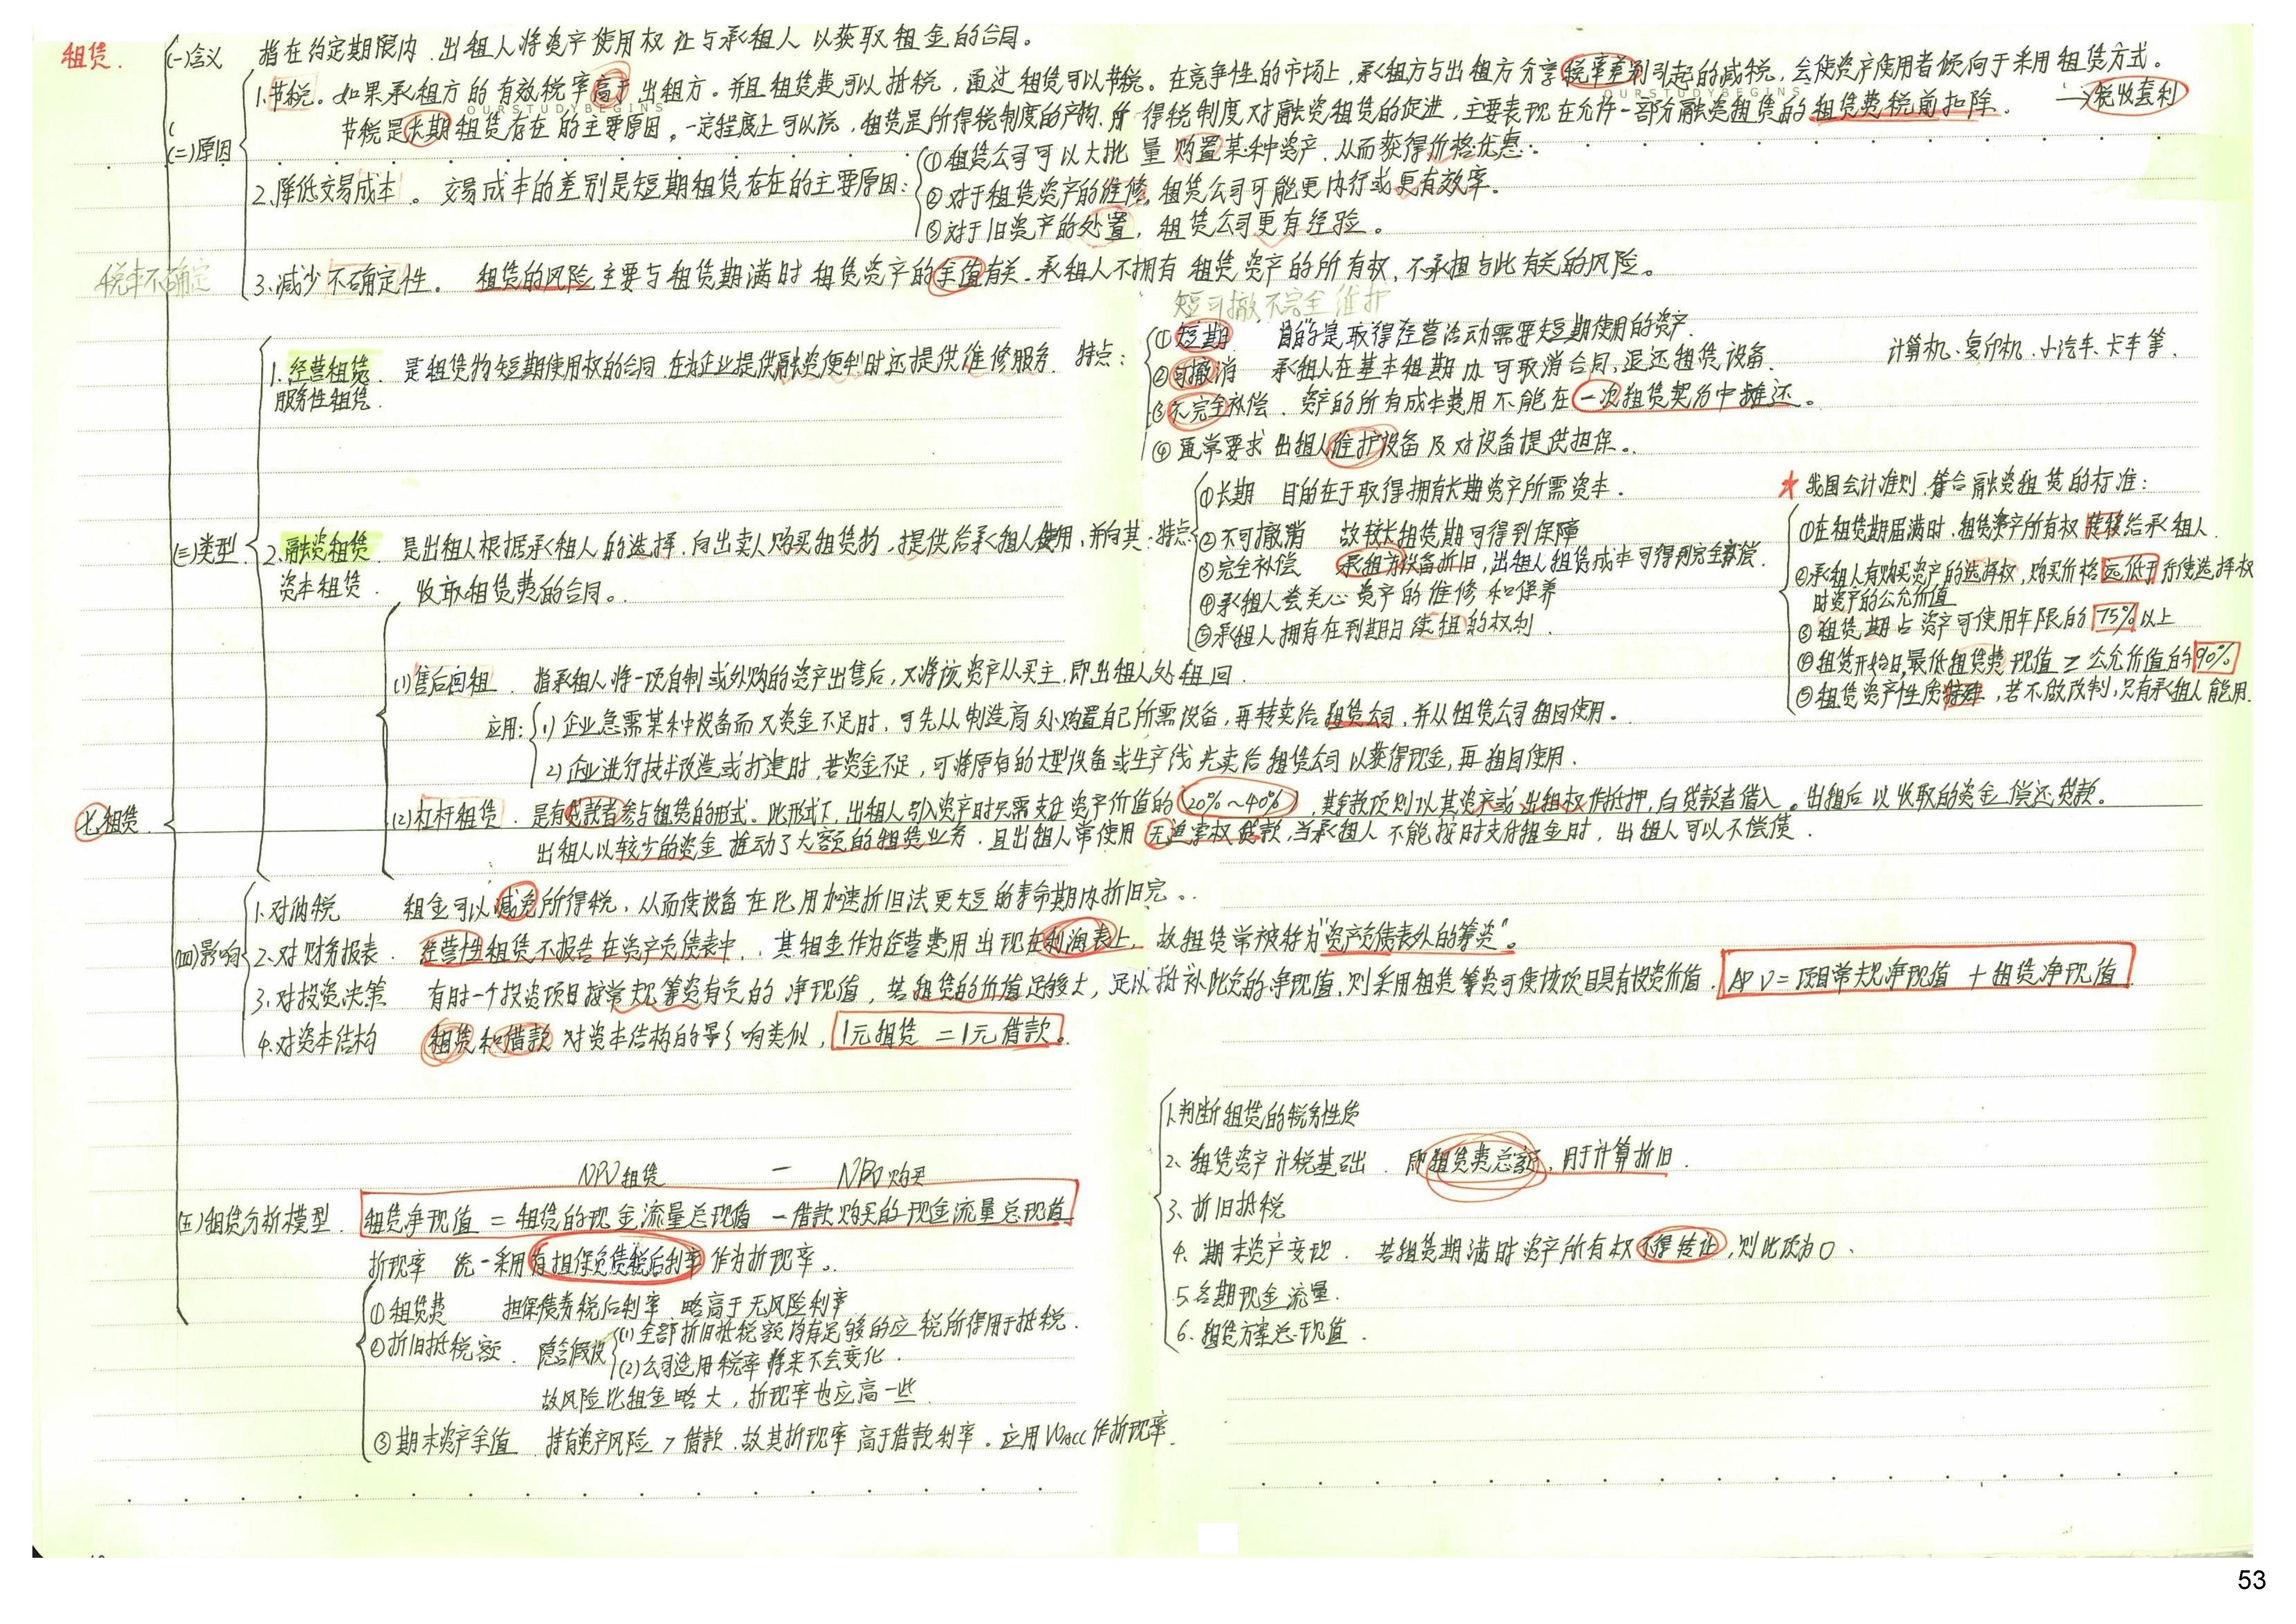 租赁.
(一)含义 指在约定期限内.出租人将资产使用权让与承租人以获取租金的合同。
(二)原因
1.节税。如果承租方的有效税率高于出租方。并且租赁费可以抵税，通过租赁可以节税。在竞争性的市场上，承租方与出租方分享税率差别引起的减税，会使资产使用者倾向于采用租赁方式。
OURSTUDYBEGINS
OURSTUDYBEGINS
节税是长期租赁存在的主要原因。一定程度上可以说，租赁是所得税制度的产物.所得税制度对融资租赁的促进，主要表现在允许一部分融资租赁的租赁费税前扣除。 →税收套利
2.降低交易成本。交易成本的差别是短期租赁存在的主要原因：
①租赁公司可以大批量购置某种资产.从而获得价格优惠.
②对于租赁资产的维修，租赁公司可能更内行或更有效率。
③对于旧资产的处置，租赁公司更有经验。
税率不确定
3.减少不确定性。 租赁的风险主要与租赁期满时租赁资产的余值有关.承租人不拥有租赁资产的所有权，不承担与此有关的风险。
短可撤不完全维护
(三)类型.
1.经营租赁. 是租赁物短期使用权的合同.在为企业提供融资便利时还提供维修服务. 特点：
服务性租赁.
①短期 目的是取得经营活动需要短期使用的资产. 计算机、复印机、小汽车、卡车等.
②可撤消 承租人在基本租期内可取消合同，退还租赁设备.
③不完全补偿. 资产的所有成本费用不能在一次租赁契约中摊还。
④通常要求出租人维护设备及对设备提供担保..
2.融资租赁. 是出租人根据承租人的选择.向出卖人购买租赁物，提供给承租人使用，并向其 特点
资本租赁. 收取租赁费的合同。
①长期 目的在于取得拥有长期资产所需资本.
②不可撤消 故较长租赁期可得到保障
③完全补偿 承租方设备折旧，出租人租赁成本可得到完全补偿.
④承租人会关心资产的维修和保养
⑤承租人拥有在到期日续租的权利.
★我国会计准则.符合融资租赁的标准：
①在租赁期届满时.租赁资产所有权转移给承租人.
②承租人有购买资产的选择权，购买价格远低于行使选择权
时资产的公允价值
③租赁期占资产可使用年限的75%以上
④租赁开始日,最低租赁费现值≥公允价值的90%
⑤租赁资产性质特殊，若不做改制，只有承租人能用.
(1)售后回租. 指承租人将一项自制或外购的资产出售后，又将该资产从买主.即出租人处租回.
应用：1) 企业急需某种设备而又资金不足时，可先从制造商处购置自己所需设备，再转卖给租赁公司，并从租赁公司租回使用。
2) 企业进行技术改造或扩建时，若资金不足，可将原有的大型设备或生产线先卖给租赁公司以获得现金，再租回使用.
七.租赁.
(2)杠杆租赁. 是有贷款者参与租赁的形式。此形式下，出租人引入资产时只需支付资产价值的20%~40%，其余款项则以其资产或出租权作抵押，向贷款者借入。出租后以收取的资金偿还贷款。
出租人以较少的资金推动了大额的租赁业务.且出租人常使用无追索权贷款，当承租人不能按时支付租金时，出租人可以不偿债.
(四)影响
1.对纳税 租金可以减免所得税，从而使设备在比用加速折旧法更短的寿命期内折旧完..
2.对财务报表. 经营性租赁不报告在资产负债表中.，其租金作为经营费用出现在利润表上，故租赁常被称为"资产负债表外的筹资"。
3.对投资决策 有时一个投资项目按常规筹资有负的净现值，若租赁的价值足够大，足以抵补此负的净现值，则采用租赁筹资可使该项目具有投资价值. APV=项目常规净现值+租赁净现值.
4.对资本结构 租赁和借款对资本结构的影响类似，1元租赁=1元借款。
NPV租赁 - NPV购买
(五)租赁分析模型. 租赁净现值=租赁的现金流量总现值-借款购买的现金流量总现值
折现率 统一采用有担保负债税后利率作为折现率..
①租赁费 担保债券税后利率.略高于无风险利率
②折旧抵税额. 隐含假设 (1)全部折旧抵税额均有足够的应税所得用于抵税.
(2)公司适用税率将来不会变化.
故风险比租金略大，折现率也应高一些.
③期末资产余值 持有资产风险>借款.故其折现率高于借款利率。应用Wacc作折现率.
1.判断租赁的税务性质
2、租赁资产计税基础. 即租赁费总额，用于计算折旧.
3、折旧抵税
4、期末资产变现. 若租赁期满时资产所有权不得转让，则此项为0、
5.各期现金流量.
6、租赁方案总现值.
53